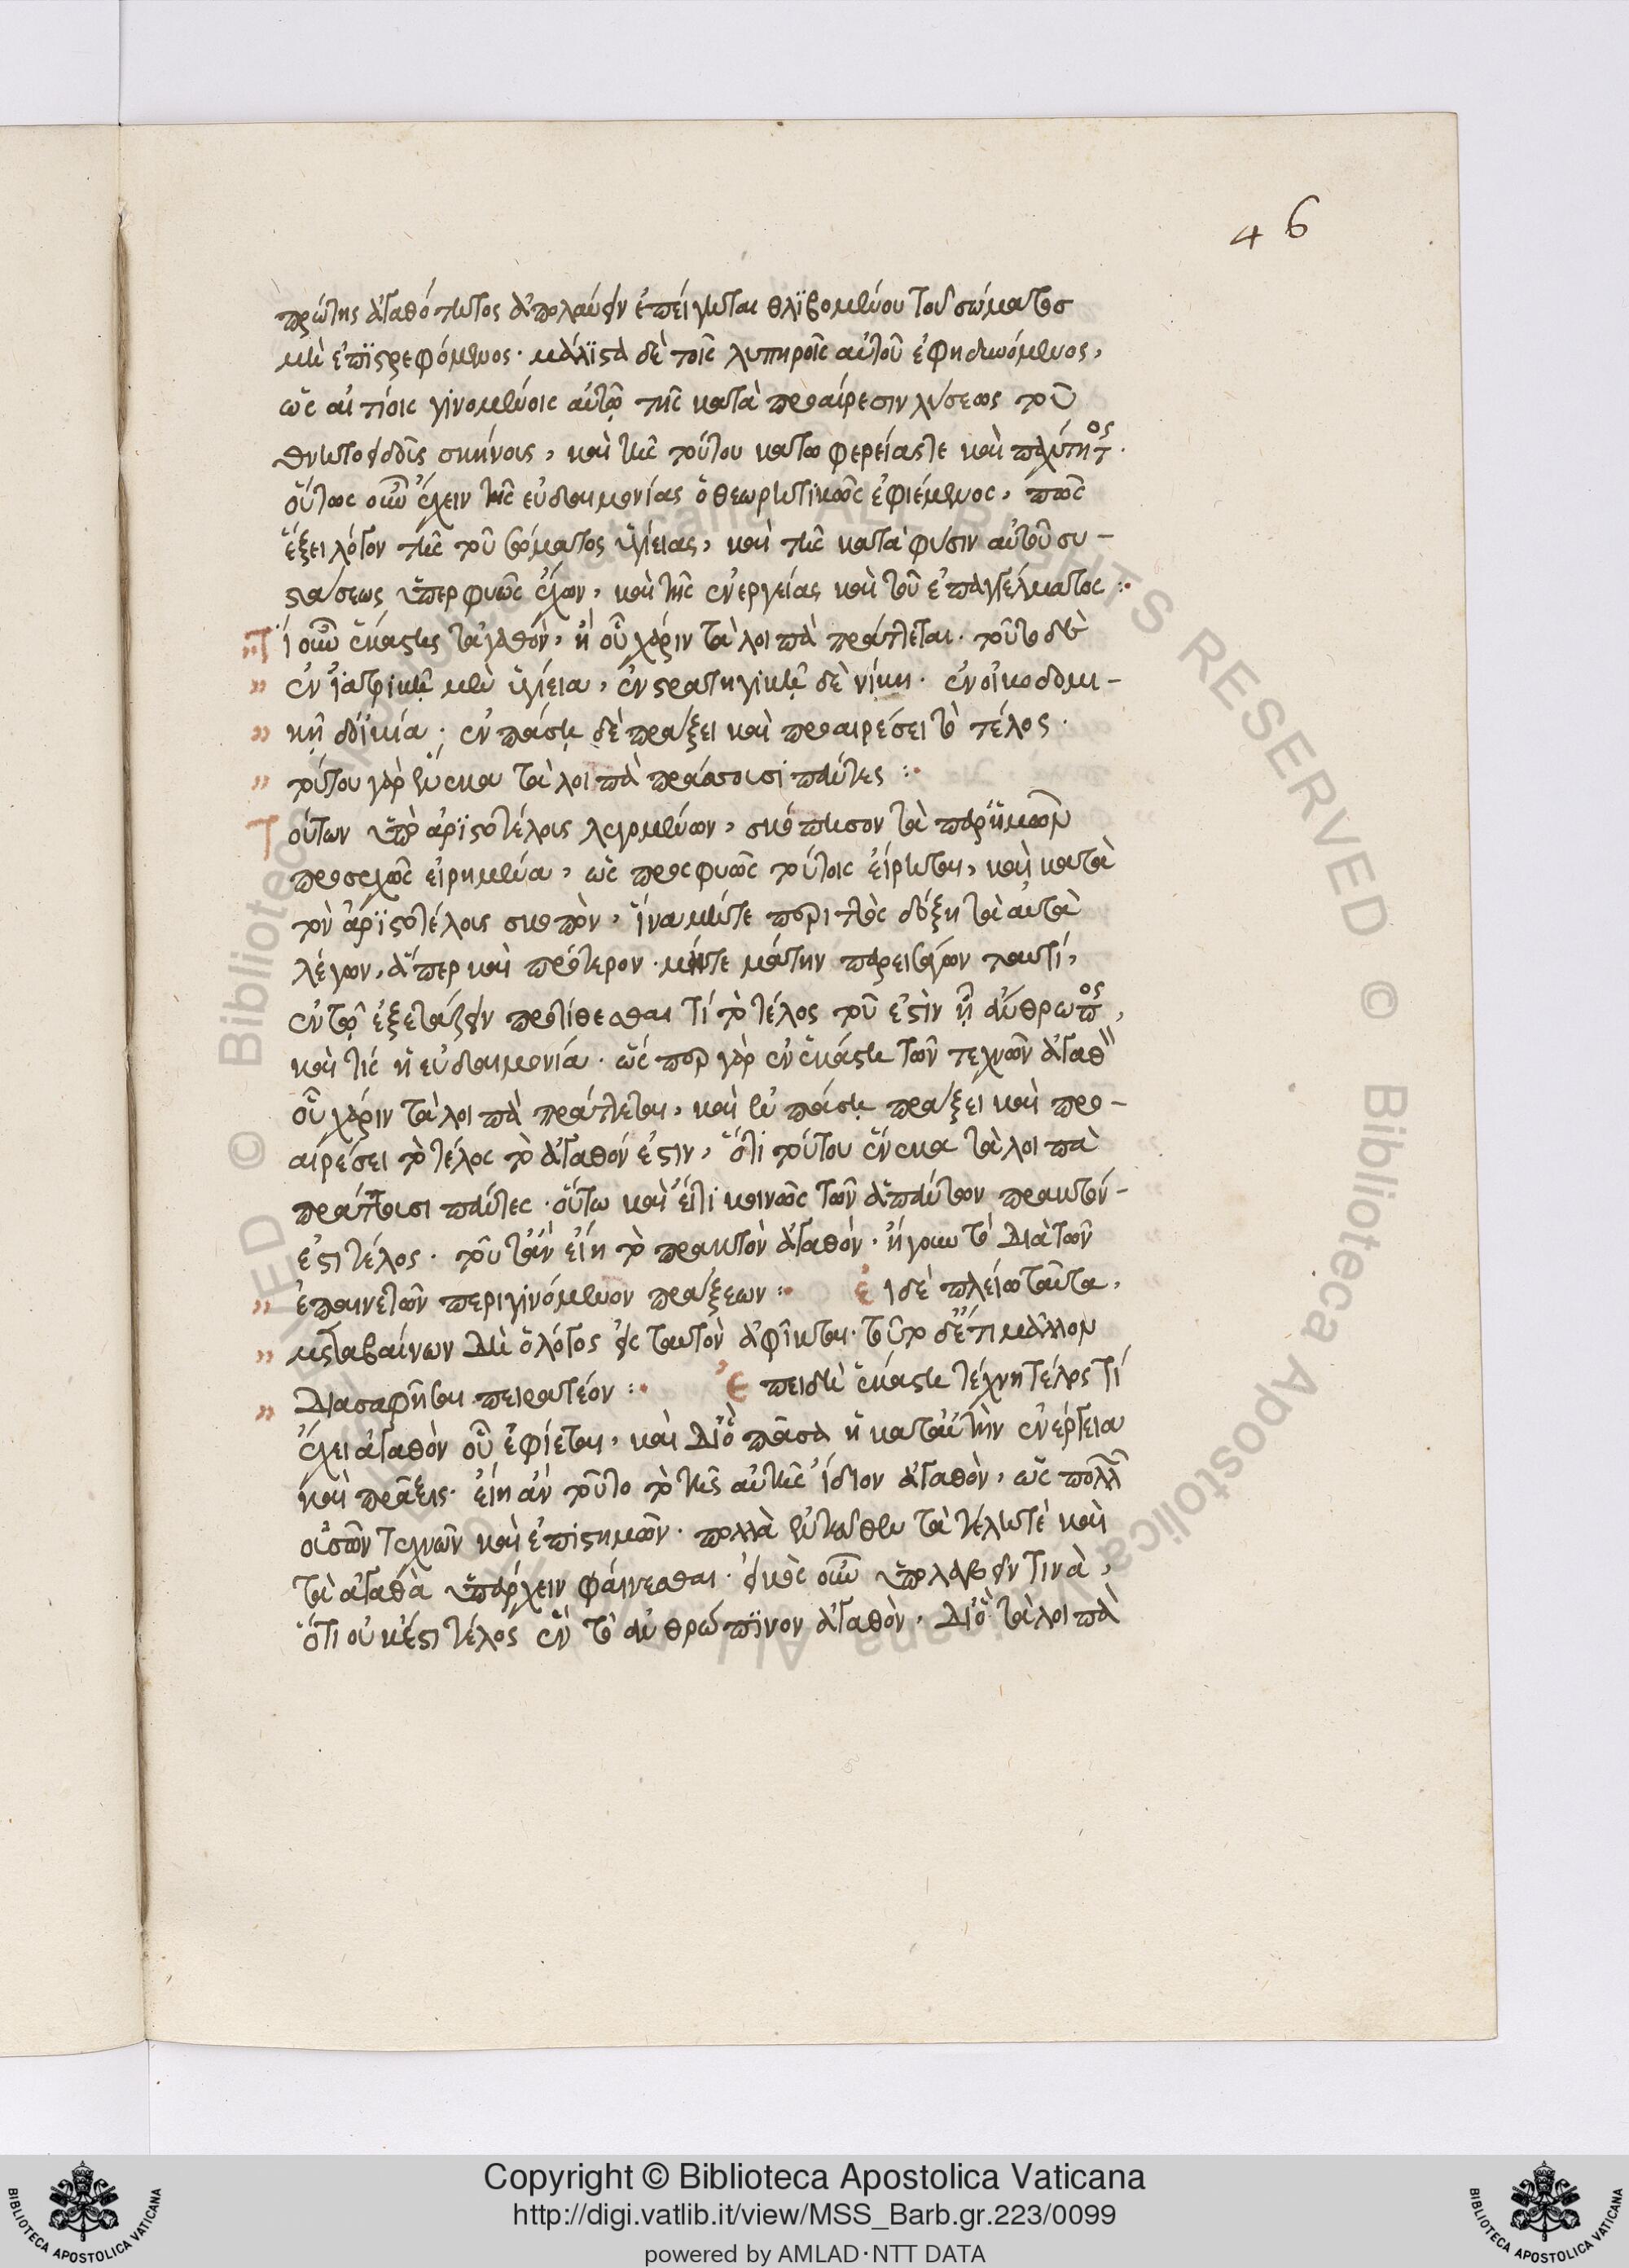 46
πρώτης ἀγαθότητος ἀπολαύειν ἐπείγηται θλϊβομένου τοῦ σώματος
μὴ ἐπϊστρεφόμενος· μάλϊστα δὲ τοῖς λυπηροῖς αὐτοῦ ἐφηδυνόμενος,
ὡς αἰτίοις γϊνομένοις αὐτῷ τῆς κατὰ προαίρεσιν λύσεως τοῦ
θνητοειδοῦς σκήνους, καὶ τῆς τούτου κατωφερείας τε καὶ παχύτητος·
οὕτως οὖν ἔχειν τῆς εὐδαιμονίας ὁ θεωρητϊκῶς ἐφιέμενος, πῶς
ἕξει λόγον τῆς τοῦ σώματος ὑγείας, καὶ τῆς κατὰ φύσιν αὐτοῦ συ-
στάσεως ὑπερφυῶς ἔχων, καὶ τῆς ἐνεργείας καὶ τοῦ ἐπαγγέλματος :·
" Τί οὖν ἑκάστης τἀγαθόν, ἢ οὗ χάριν τὰ λοιπὰ πράττεται· τοῦτο δὲ
" ἐν ἰατρικῇ μὲν ὑγίεια, ἐν στρατηγικῇ δὲ νίκη· ἐν οἰκοδομι-
" κῇ δὲ οἰκία· ἐν πάσῃ δὲ πράξει καὶ προαιρέσει τὸ τέλος·
" τούτου γὰρ ἕνεκα τὰ λοιπὰ πράσσουσι πάντες :·
Τούτων ὑπὸ ἀρϊστοτέλους λεγομένων, σκόπησον τὰ παρ' ἡμῶν
προσεχῶς εἰρημένα, ὡς προσφυῶς τούτοις εἴρηται, καὶ κατὰ
τὸν ἀρϊστοτέλους σκοπὸν, ἵνα μήτε περιττὸς δόξῃ τὰ αὐτὰ
λέγων, ἅπερ καὶ πρότερον· μήτε μάτην παρεισάγων ταυτί,
ἐν τῷ ἐξετάζειν προτίθεσθαι τί τὸ τέλος τοῦ ἐστὶν ᾗ ἄνθρωπος,
καὶ τίς ἡ εὐδαιμονία· ὥσπερ γὰρ ἐν ἑκάστῃ τῶν τεχνῶν ἀγαθὸν
οὗ χάριν τὰ λοιπὰ πράττεται, καὶ ἐν πάσῃ πράξει καὶ προ-
αιρέσει τὸ τέλος τὸ ἀγαθόν ἐστιν, ὅτι τούτου ἕνεκα τὰ λοιπὰ
πράττουσι πάντες· οὕτω καὶ εἴ τι κοινῶς τῶν ἁπάντων πρακτόν-
ἐστι τέλος· τοῦτ' ἂν εἴη τὸ πρακτὸν ἀγαθόν· ἤγουν τὸ διὰ τῶν
" ἐπαινετῶν περιγινόμενον πράξεων :· εἰ δὲ πλείω ταῦτα,
" μεταβαίνων δὴ ὁ λόγος εἰς ταυτὸν ἀφῖκται· τοῦτο δέ τι μᾶλλον
" διασαφῆσαι πειρατέον :· Ἐπειδὴ ἑκάστῃ τέχνῃ τέλος τί
ἔχει ἀγαθὸν οὗ ἐφίεται, καὶ δι' ὃ πᾶσα ἡ κατ' αὐτὴν ἐνέργεια
καὶ πρᾶξις· εἴη ἂν τοῦτο τὸ τῆς αὐτῆς ἴδιον ἀγαθὸν, ὡς πολλῶν
οὐσῶν τεχνῶν καὶ ἐπιστημῶν· πολλὰ ἐντεῦθεν τὰ τέλη τὲ καὶ
τὰ ἀγαθὰ ὑπάρχειν φαίνεσθαι· εἰκὸς οὖν ὑπολαβεῖν τινὰ,
ὅτι οὐκ ἔστι τέλος ἓν τὸ ἀνθρώπϊνον ἀγαθὸν, δι' ὃ τὰ λοιπὰ
Copyright © Biblioteca Apostolica Vaticana
http://digi.vatlib.it/view/MSS_Barb.gr.223/0099
powered by AMLAD·NTT DATA